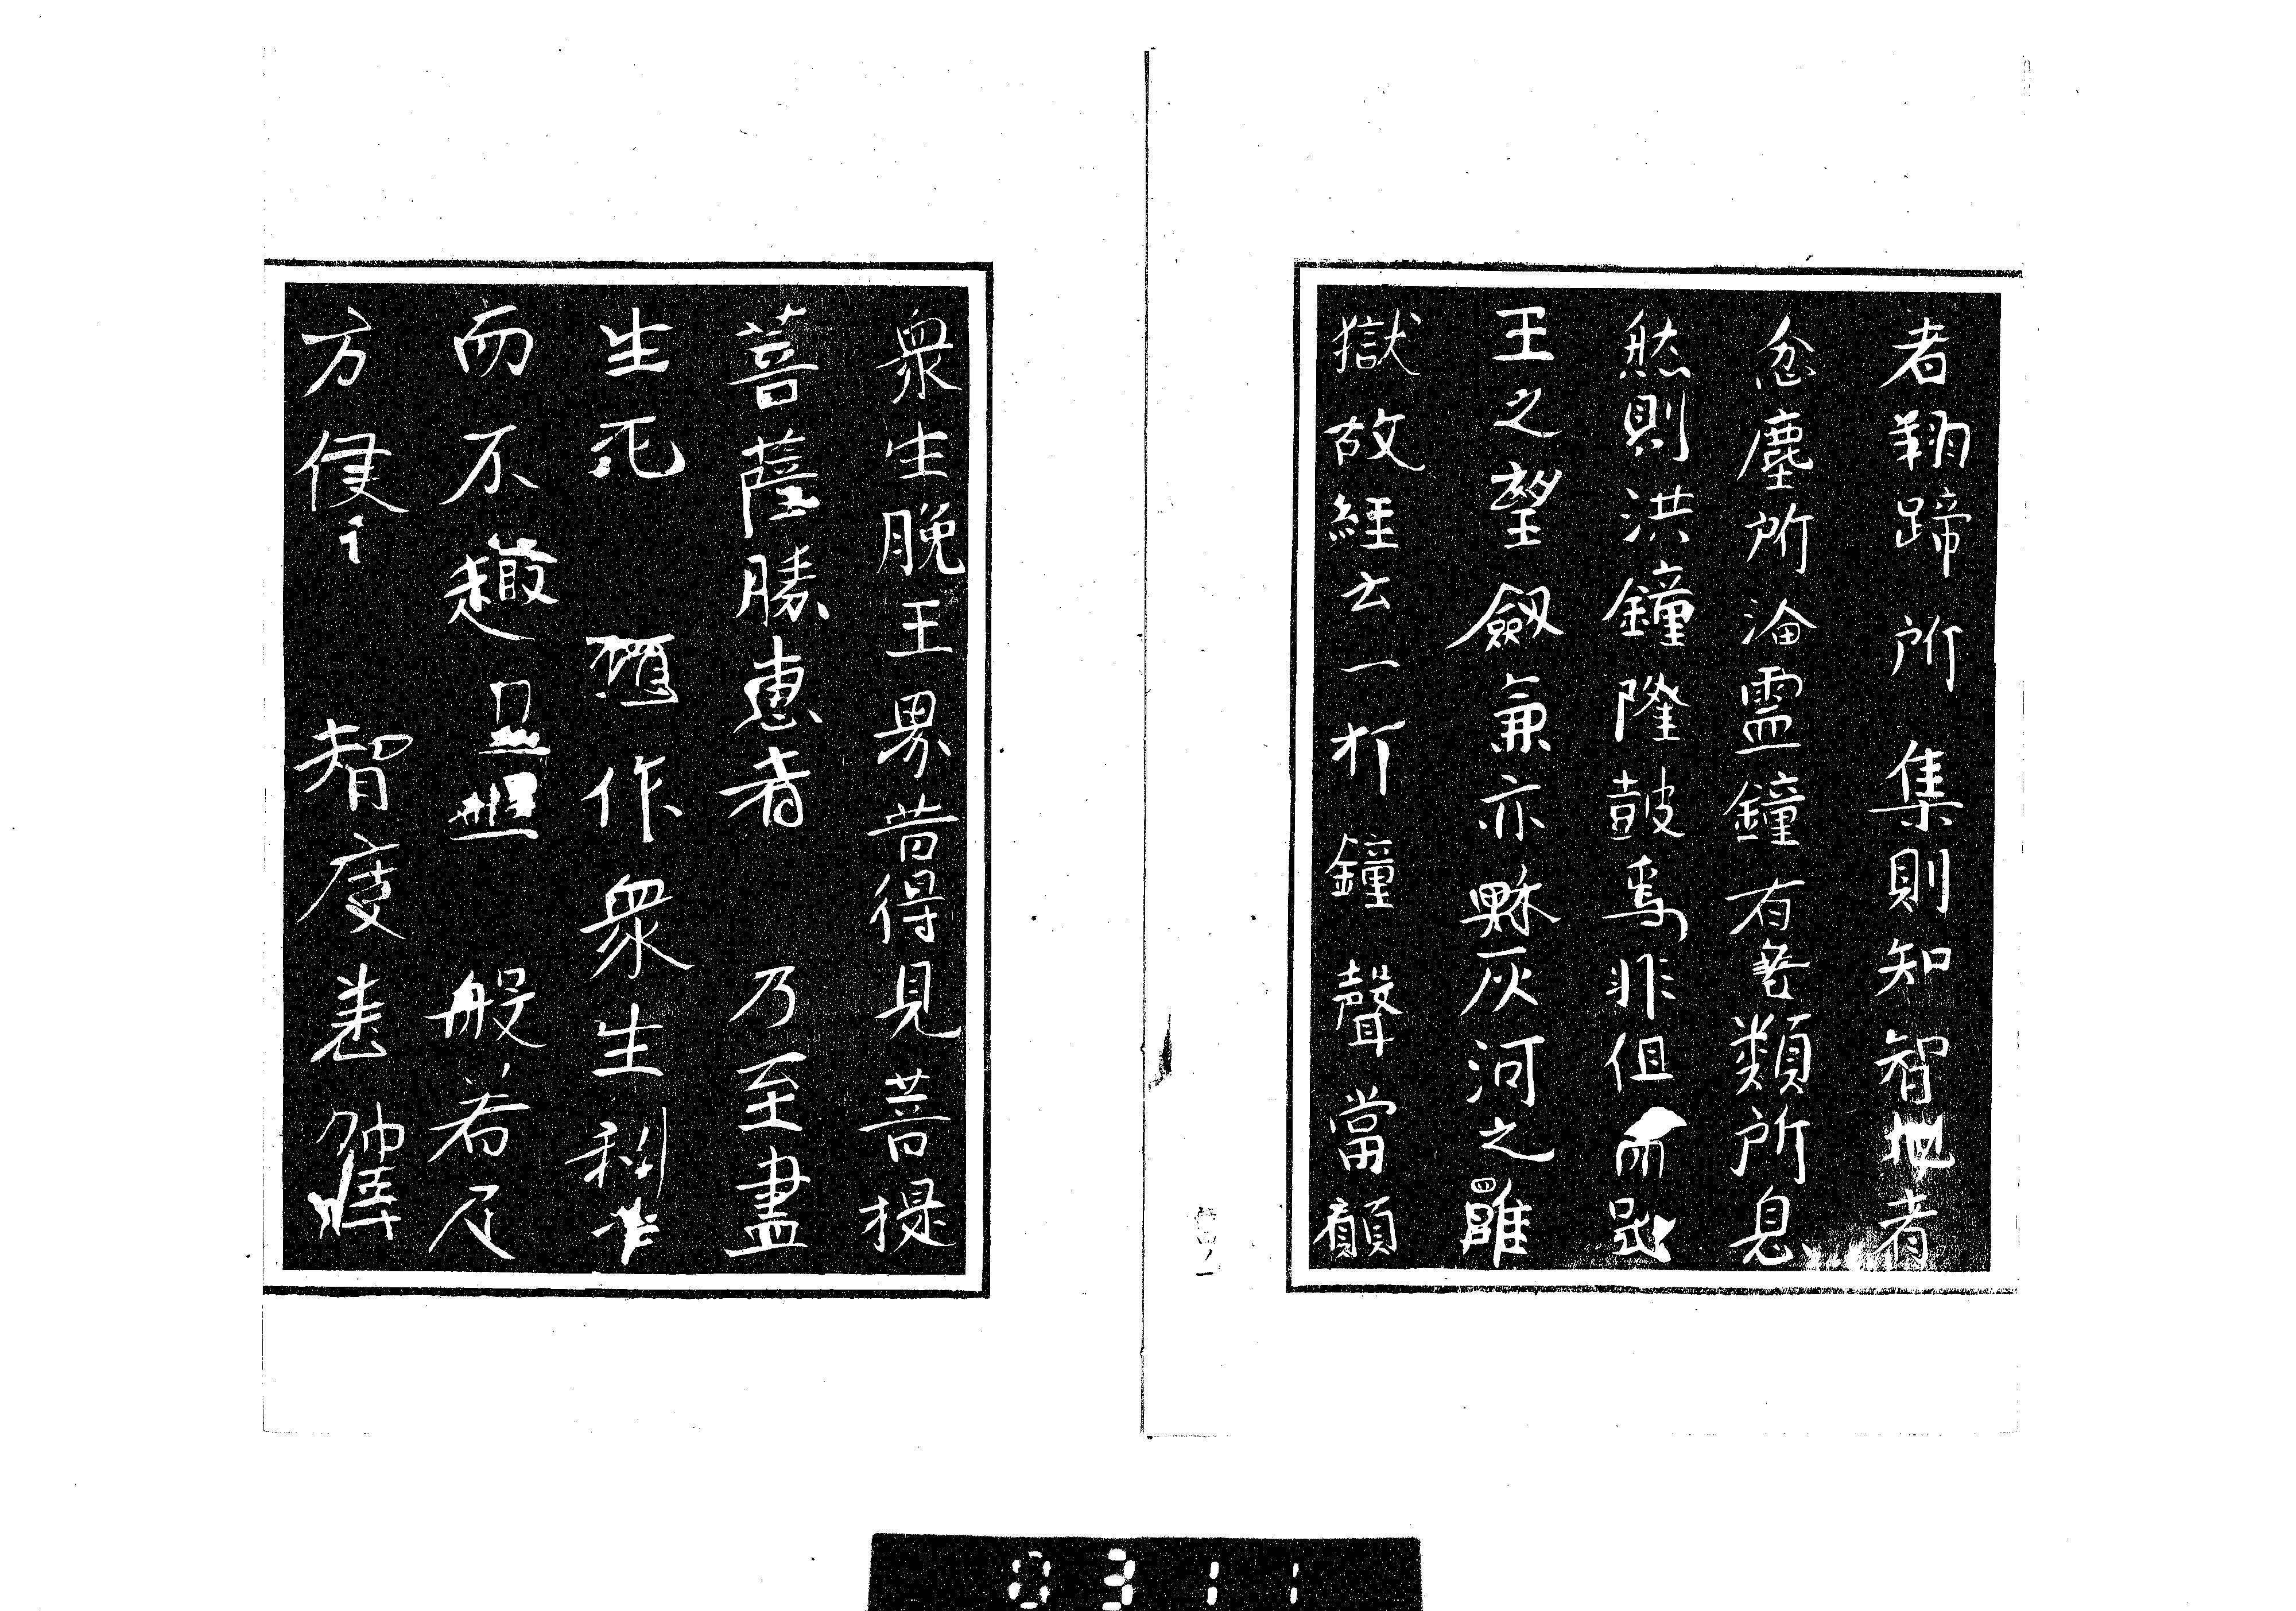 者翔蹄所集則知智地者
忿塵所淪霊鐘有善類所息
然則洪鐘隆皷焉非但而
王之望劔兼亦穌灰河之
獄故經云一打鐘聲當願
衆生脱王界昔得見菩提
菩薩勝恵者乃至盡
生死作衆生利
而不趣般若及
方便智度悉
0311